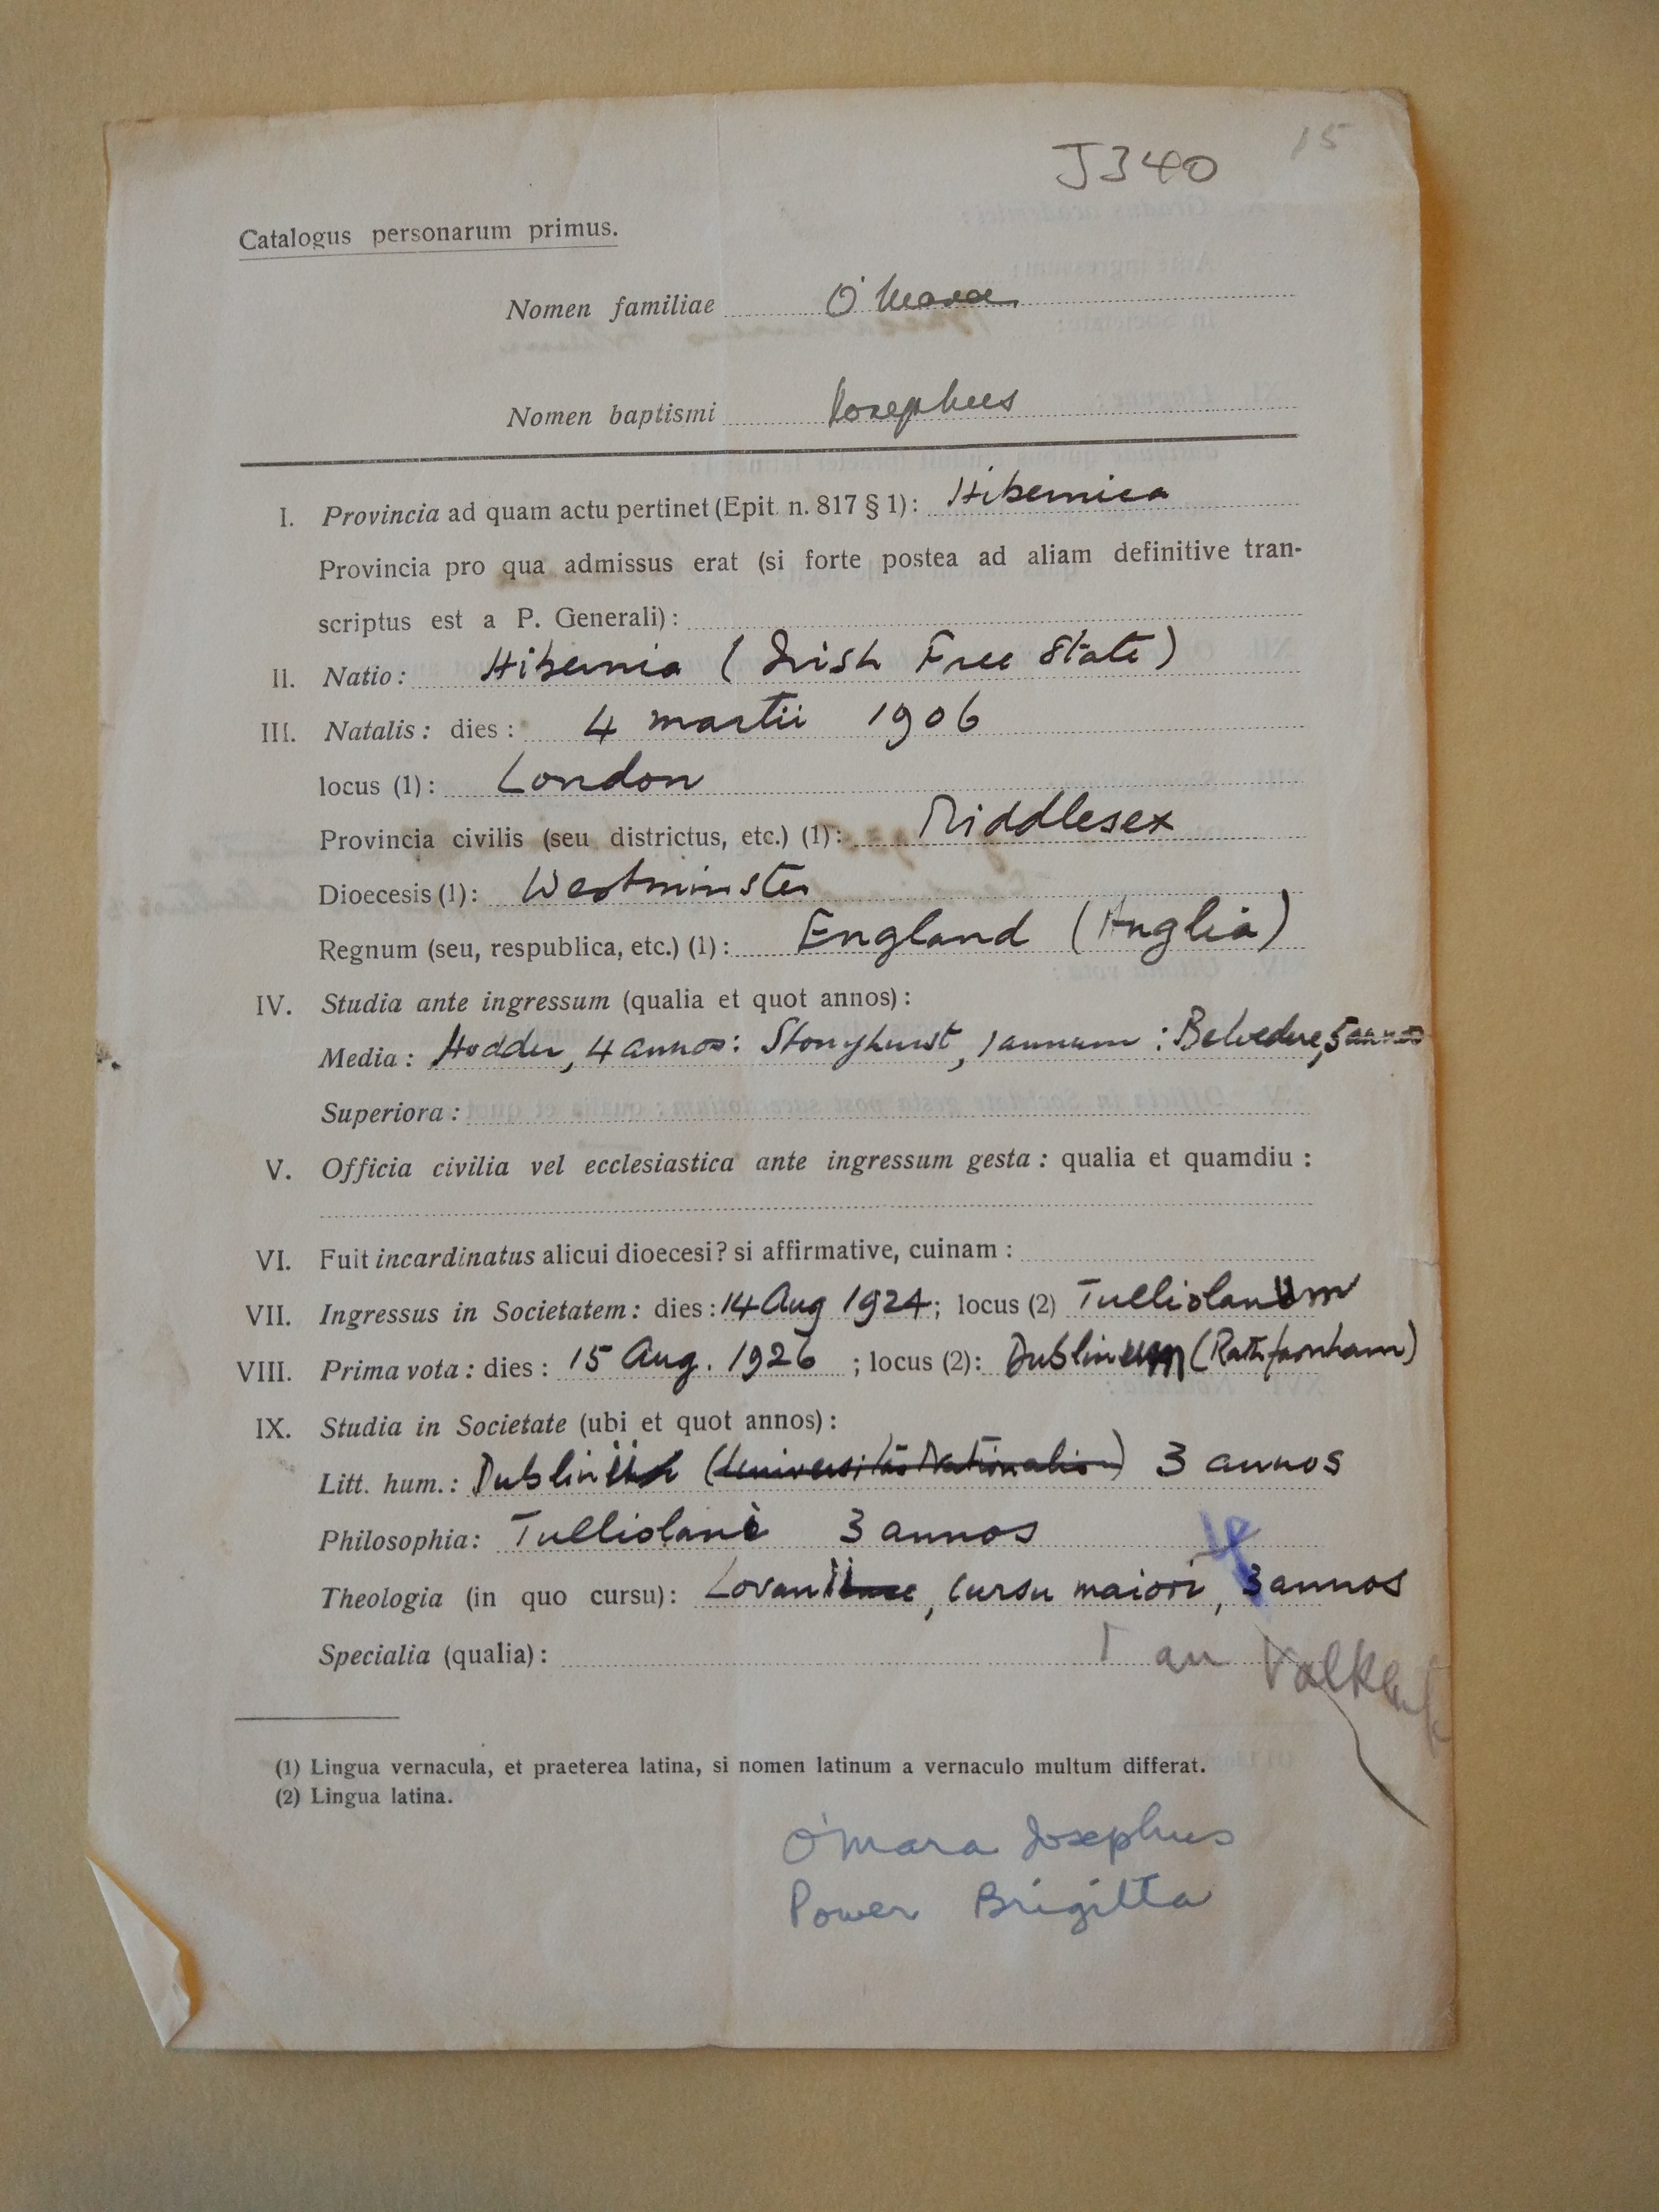 J340 15
Catalogus personarum primus.
Nomen familiae O'Mara
Nomen baptismi Iosephus
I. Provincia ad quam actu pertinet (Epit. n. 817 § 1): Hibernica
Provincia pro qua admissus erat (si forte postea ad aliam definitive tran-
scriptus est a P. Generali):
II. Natio: Hibernia (Irish Free State)
III. Natalis: dies: 4 martii 1906
locus (1): London
Provincia civilis (seu districtus, etc.) (1): Middlesex
Dioecesis (1): Westminster
Regnum (seu, respublica, etc.) (1): England (Anglia)
IV. Studia ante ingressum (qualia et quot annos):
Media: Hodder, 4 annos: Stonyhurst, 1 annum: Belvedere, 5 annos
Superiora:
V. Officia civilia vel ecclesiastica ante ingressum gesta: qualia et quamdiu:
VI. Fuit incardinatus alicui dioecesi? si affirmative, cuinam:
VII. Ingressus in Societatem: dies: 14 Aug 1924; locus (2) Tulliolanum
VIII. Prima vota: dies: 15 Aug. 1926; locus (2): Dublinum (Rathfarnham)
IX. Studia in Societate (ubi et quot annos):
Litt. hum.: Dublinii (Universitas Nationalis) 3 annos
Philosophia: Tulliolani 3 annos
Theologia (in quo cursu): Lovanii, cursu maiori, 3 annos
Specialia (qualia): 1 an
(1) Lingua vernacula, et praeterea latina, si nomen latinum a vernaculo multum differat.
(2) Lingua latina.
O'Mara Josephus
Power Brigitta